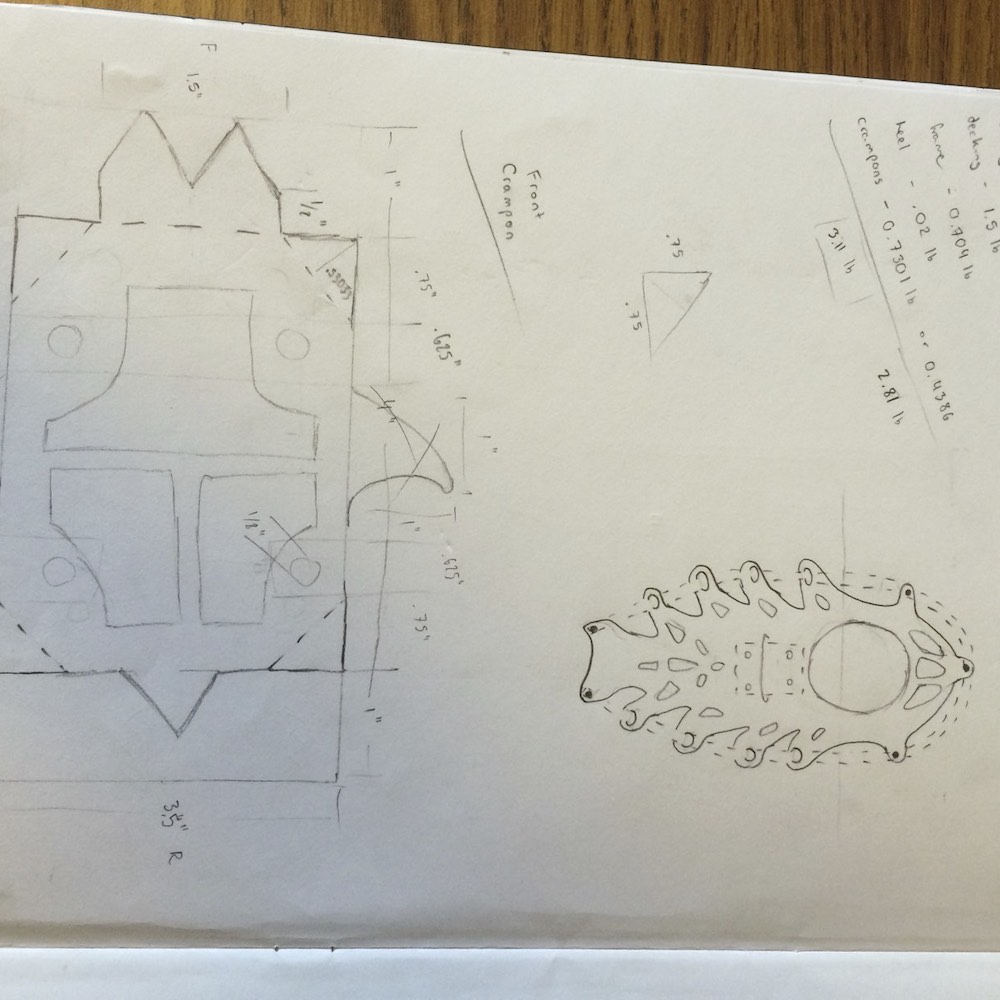 decking - 1.5 lb
frame - 0.704 lb
heel - .02 lb
crampons - 0.7301 lb or 0.4386
3.11 lb
2.81 lb
.75
.75
Front
Crampon
F
1.5"
1"
1/2"
.75"
.625"
1"
1"
.625"
.75"
1/8"
1"
3.5"
R